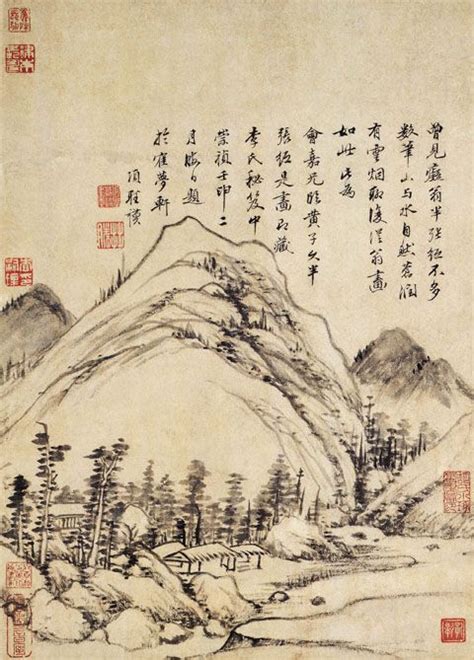 曾見癡翁半張紙不多
數筆山與水自然蒼潤
有雲烟聊復從翁畫
如此此為
會嘉兄臨黃子久半
張紙是畫即藏
李氏秘笈中
崇禎壬申二
月晦日題
於寉夢軒
項聖謨